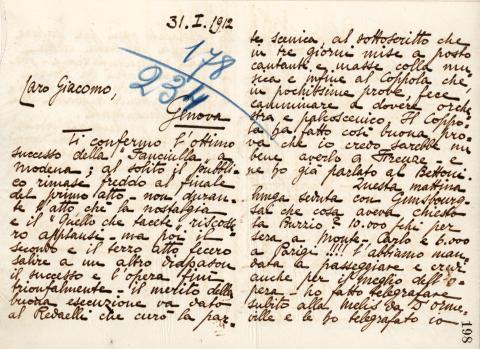 31. I. 1912
178
234
Caro Giacomo,
Genova
Ti confermo l'ottimo
successo della "Fanciulla" a
Modena; al solito il pubbli-
co rimase freddo al finale
del primo atto, non duran-
te l'atto che la nostalgia
e il "Quello che tacete" riscosse-
ro applausi - ma poi il
secondo e il terzo atto fecero
salire a un altro diapason
il successo e l'opera finì
trionfalmente - il merito della
buona esecuzione va dato
al Redaelli che curò la par-
te scenica, al sottoscritto che
in tre giorni mise a posto
cantanti e masse colla mu-
sica e infine al Coppola che,
in pochissime prove, fece
camminare a dovere orche-
stra e palcoscenico. Il Coppo-
la ha fatto così buona pro-
va che io credo sarebbe
bene averlo a Firenze - e
ne ho già parlato al Bettoni.
Questa mattina
lunga seduta con Gunsbourg -
sai che cosa aveva chiesto
la Burzio? 10.000 fchi per
sera a Monte-Carlo e 6.000
a Parigi!!!! L'abbiamo man-
data a passeggiare e credi
anche per il meglio dell'o-
pera - ho fatto telegrafare
subito alla Melis da D'Orme-
ville e le ho telegrafato io
198